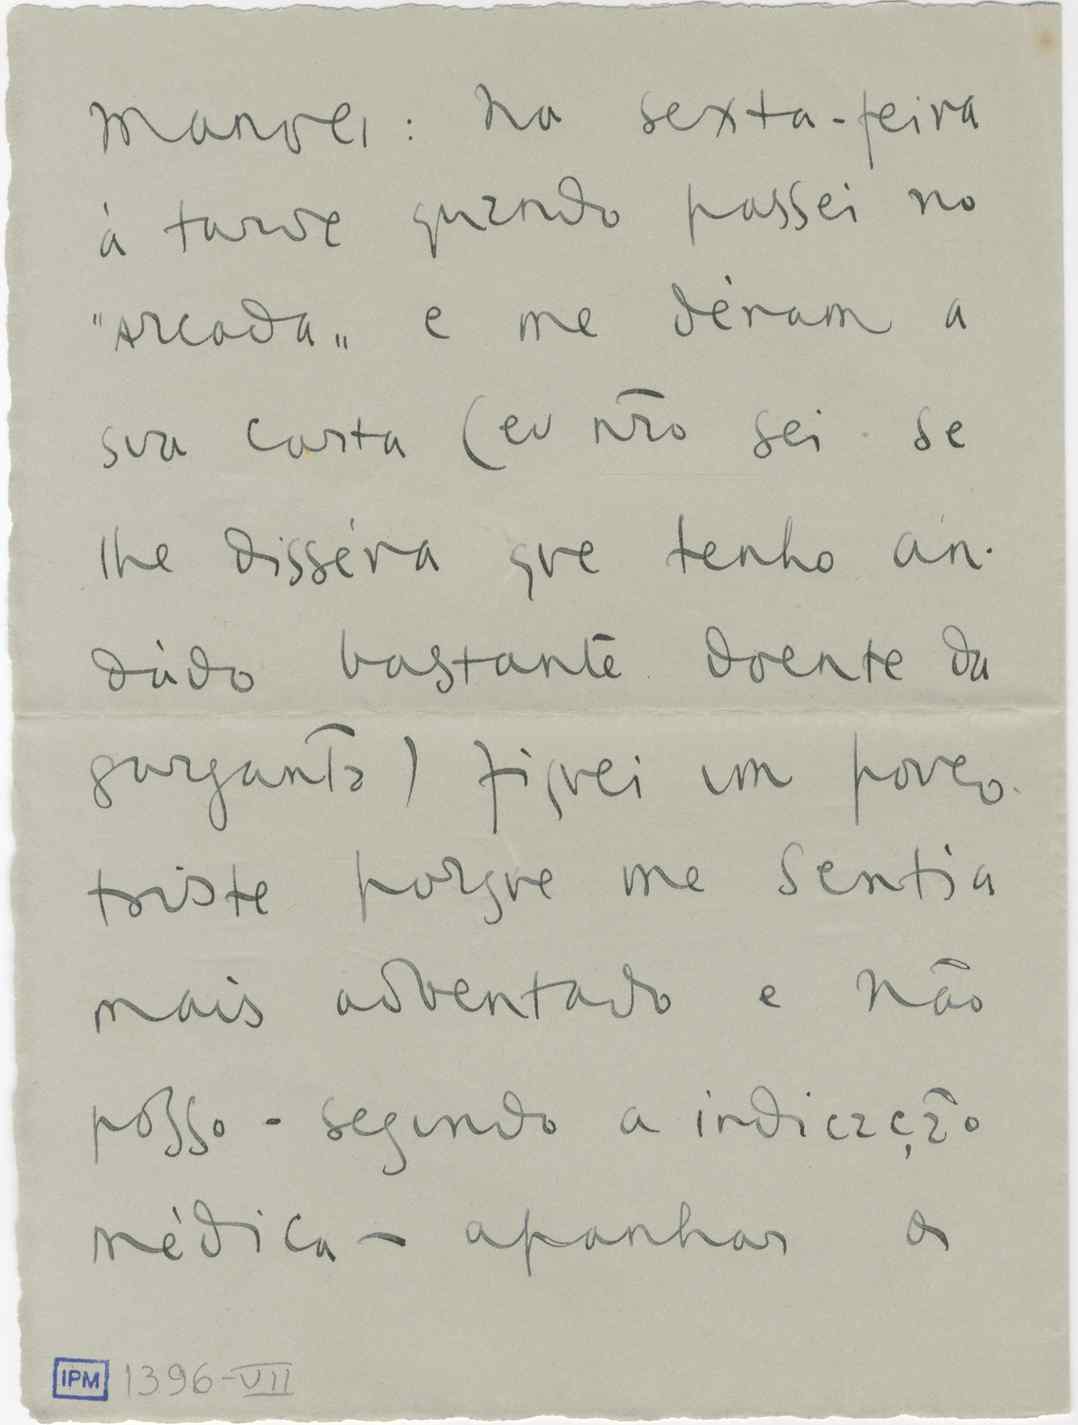 Manoel: Na sexta-feira
à tarde quando passei no
"Arcada" e me déram a
sua carta (eu não sei se
lhe disséra que tenho an-
dádo bastante doente da
garganta) fiquei um pouco
triste porque me sentia
mais adoentado e não
pósso - segundo a indicação
médica - apanhar o
IPM 1396-VII